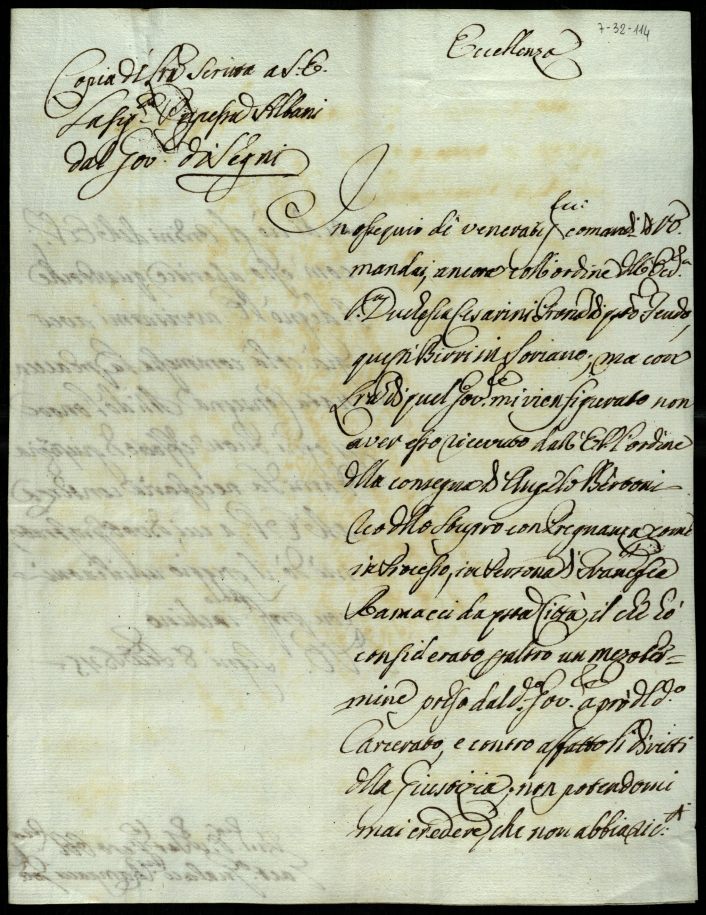 7-32-114
Eccellenza
Copia di lrã scritta a S. E.
La Sig.ra Prpessa Albani
dal Gov. di Segni
In ossequio di venerati comandi di V. E.
mandai, ancora coll'ordine dell'Ecc.ma
S.ra Duchessa Cesarini Prona di questo Feudo,
questi Birri in Soriano, ma con
lrã di quel Gov.re mi vien figurato non
aver esso ricevuto dall'E. V. l'ordine
della consegna di Angelo Berboni
reo dello stupro con pregnanza come
in Processo, in persona di Francesca
Ramacci da questa Città, il che hò
considerato p altro un mezo ter=
mine preso dal d.o Gov.re à prò del d.o
Carcerato, e contro affatto li diritti
della Giustizia, non potendomi
mai credere, che non abbia ric.